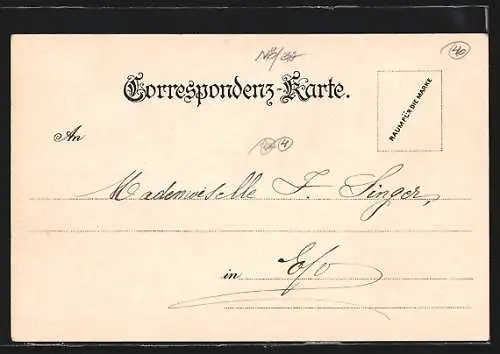 40
Correspondenz-Karte.
RAUM FÜR DIE MARKE
An
4
Mademoiselle F. Singer,
in E/o